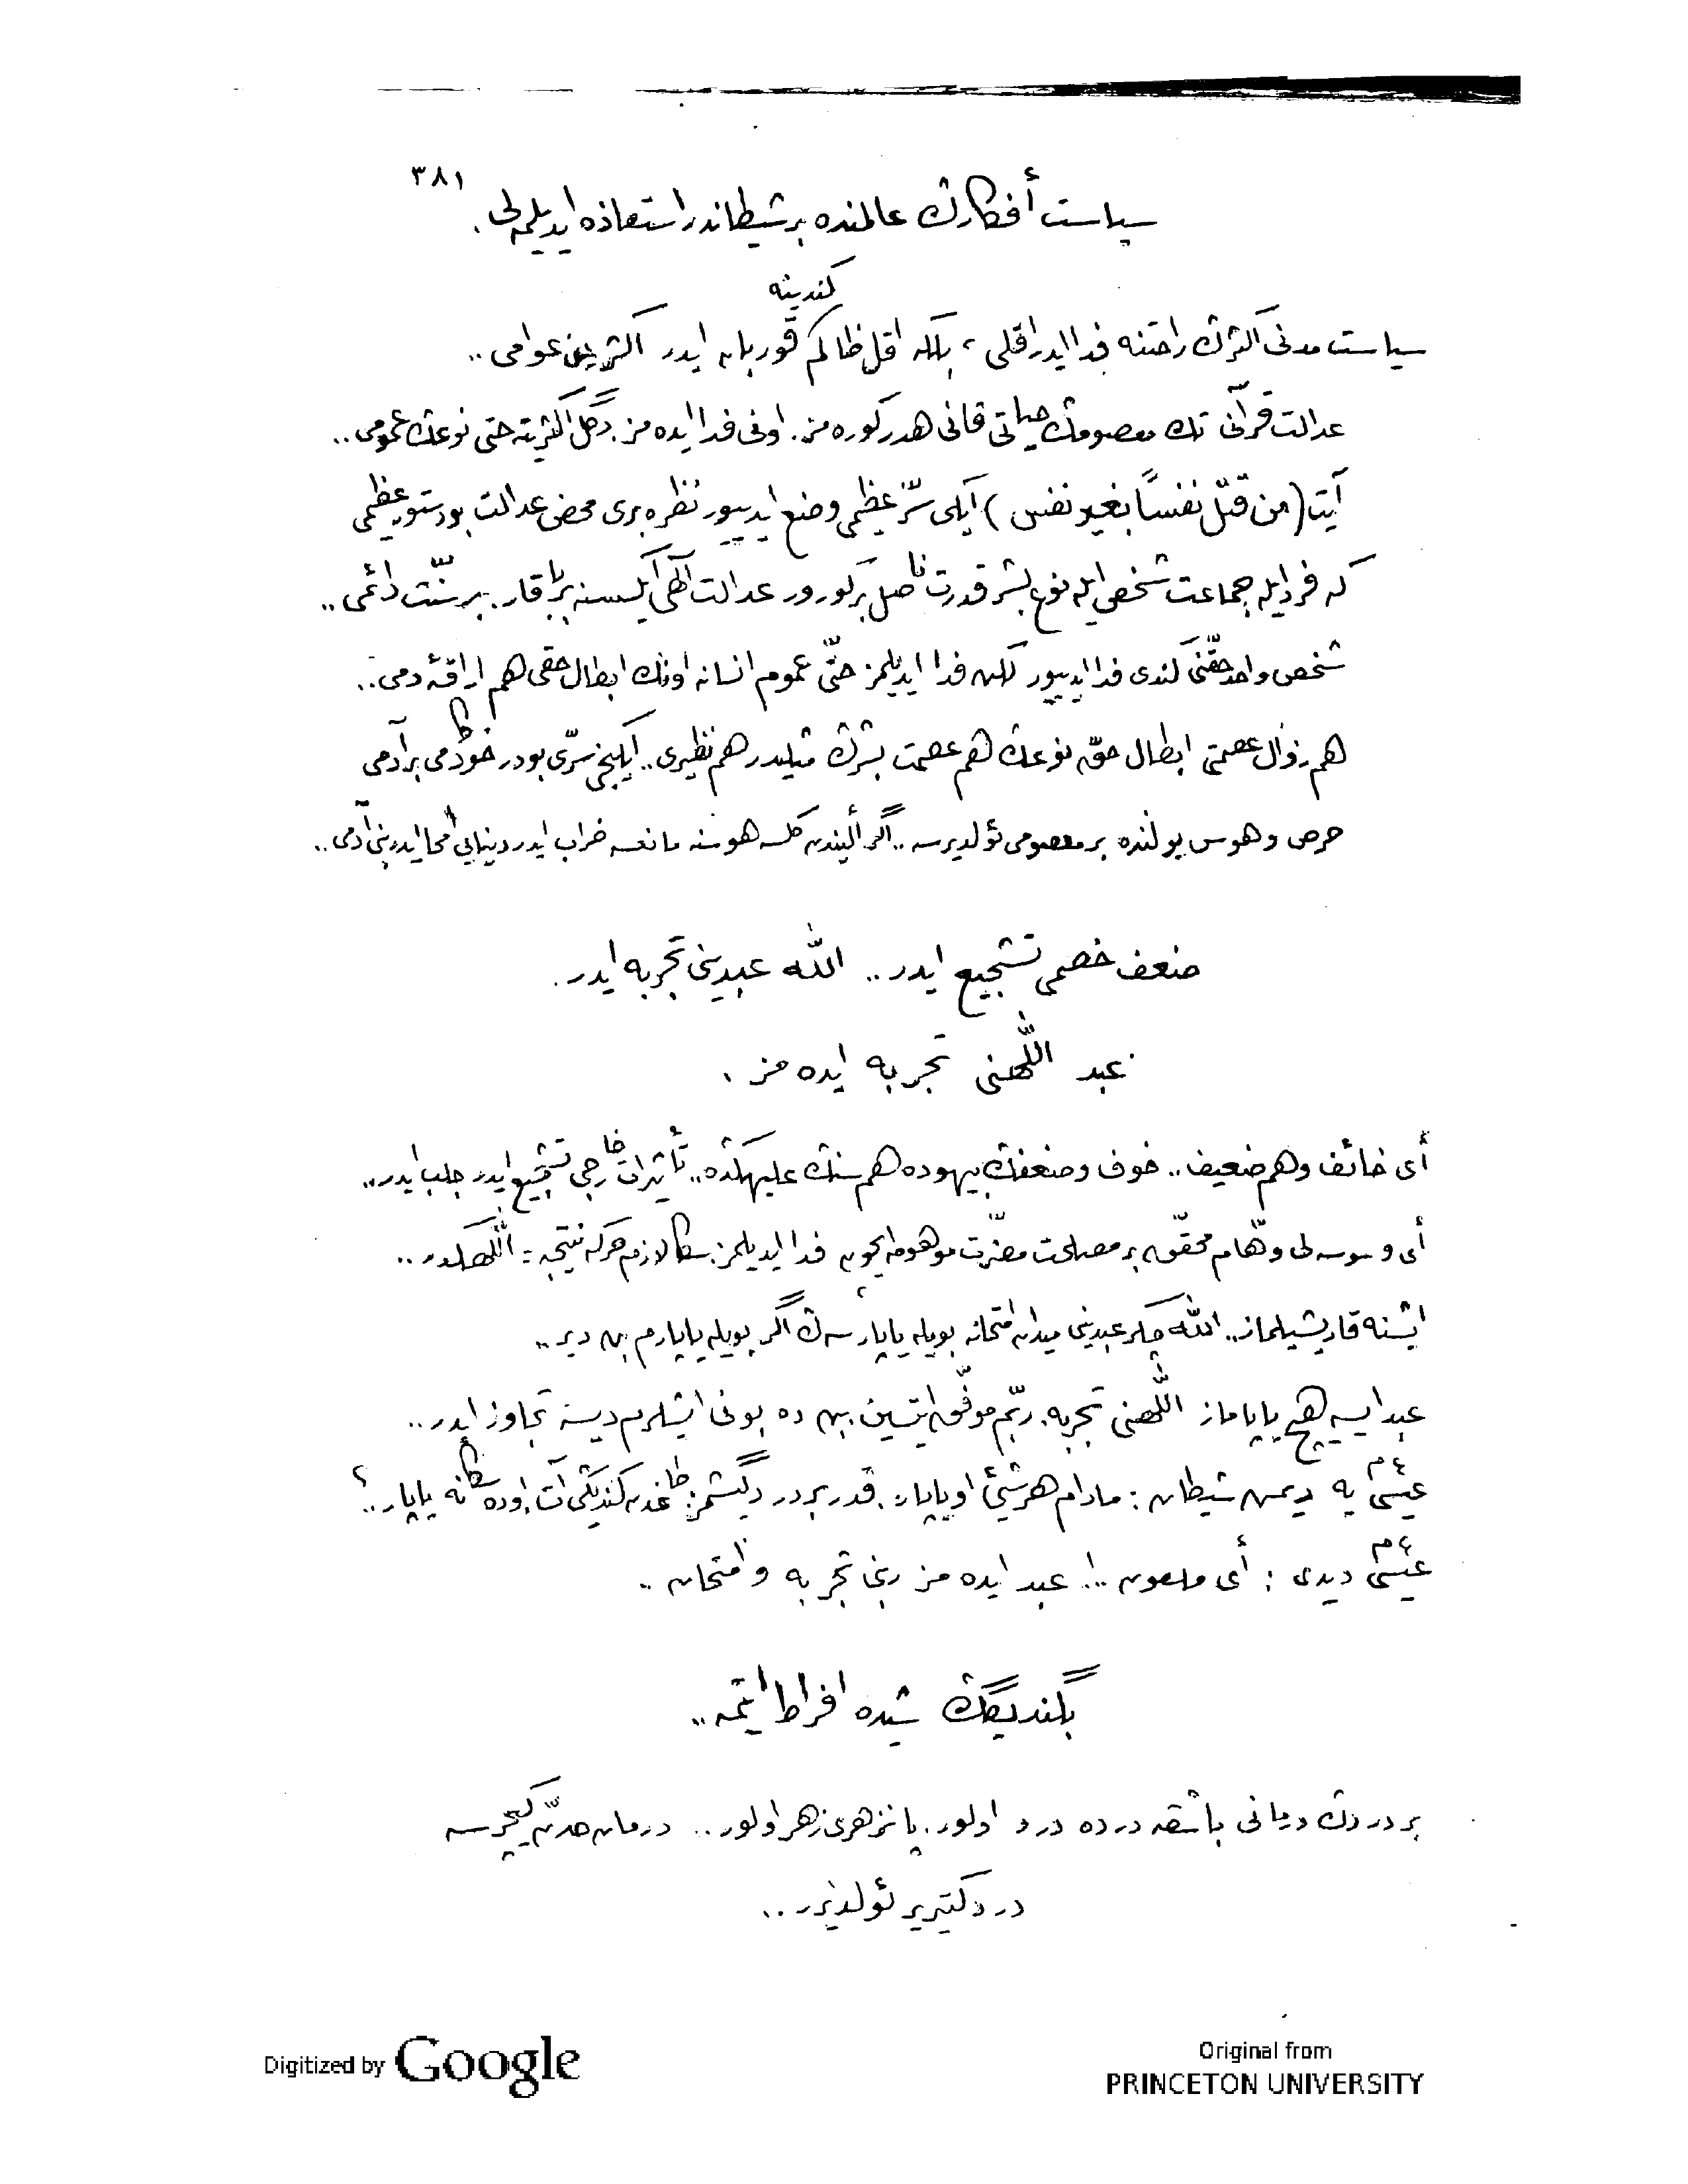 ٣٨١
سیاست أفکارڭ عالمنده بر شیطاندر استعاذه ایدیلمه‌لی.
کندینه
سیاست مدنی اکثرڭ راحتنه فدا ایدر اقلی ، بلکه اقل ظالم قوربان ایدر اکثرین عوامی ..
عدالت قرآنی تك معصومڭ حیاتی قانی هدر کوره‌مز. اونی فدا ایده‌مز. دگل اکثریته حتی نوعڭ عمومی ..
آیتِ (من قتل نفسًا بغیر نفس) ایکی سرّ عظیمی وضع ایدییور نظره بری محض عدالت بو دستور عظیمی
که فرد ایله جماعت شخص ایله نوع بشر قدرت ناصل بر کورور عدالت الٓهی ایکیسنه بر باقار. بر سنّت دائمی ..
شخص واحد حقّنی کندی فدا ایدییور لکن فدا ایدیلمز حتّی عموم انسانه اونڭ ابطال حقی هم اراقهٔ دمی ..
هم زوال عصمتی ابطال حقّ نوعڭ هم عصمت بشرڭ مثلیدر هم نظیری .. ایکنجی سرّی بودر خودکامی بر آدمی
حرص و هوس یولنده بر معصومی ئولدیرسه .. اگر ألیندن گلسه هوسنه مانعسه خراب ایدر دنیایی امحا ایدر بنی آدمی ..
ضعف خصمی تشجیع ایدر .. اللّٰه عبدینی تجربه ایدر.
عبد اللّٰهنی تجربه ایده‌مز .
أی خائف وهم ضعیف .. خوف وضعفڭ بیهوده هم سنڭ علیهڭده .. تأثیرات خارجی تشجیع ایدر جلب ایدر ..
أی وسوسه‌لی وهّام محقّق بر مصلحت مضرّت موهومه ایچون فدا ایدیلمز. سڭا لازم حرکه نتیجه = اللّٰهڭدر ..
ایشنه قاریشیلماز .. اللّٰه چکر عبدینی میدان امتحانه بویله یاپارسه‌ڭ اگر بویله یاپارم بن دیر ..
عبد ایسه هیچ یاپاماز اللّٰهنی تجربه. ربّم موفّق ایتسین بن ده بونی ایشلرم دیسه تجاوز ایدر ..
عیسی عم یه دیمش شیطان : مادام هر شیئی او یاپار. قدر بردر دگیشمز. طاغدن کندیڭی آت. او ده سڭا نه یاپار ..؟
عیسی عم دیدی : أی ملعون ..! عبد ایده‌مز ربنی تجربه و امتحان ..
بگندیگڭ شیده افراط ایتمه ..
بر دردڭ درمانی باشقه درده درد اولور. پانزهری زهر اولور .. درمان حدّن کچرسه
درد کتیریر ئولدیرر ..
Digitized by Google
Original from
PRINCETON UNIVERSITY